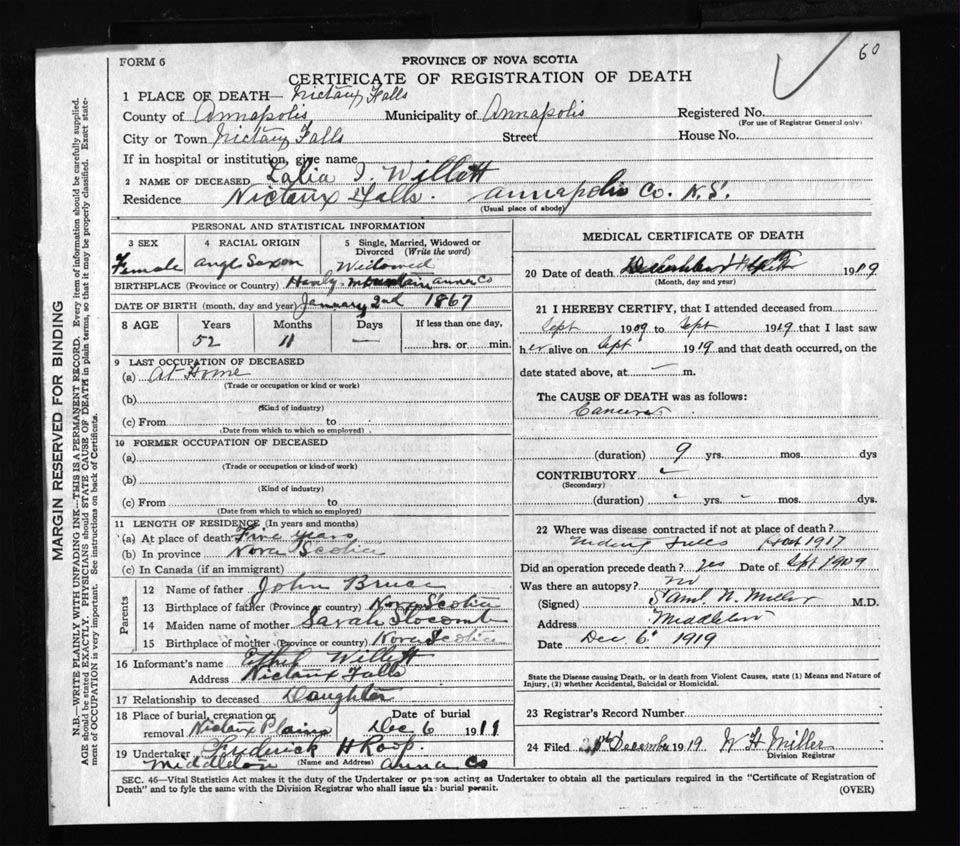 60
FORM 6
PROVINCE OF NOVA SCOTIA
CERTIFICATE OF REGISTRATION OF DEATH
1 PLACE OF DEATH— Nictaux Falls
County of Annapolis Municipality of Annapolis Registered No.
(For use of Registrar General only)
City or Town Nictaux Falls Street House No.
If in hospital or institution, give name
2 NAME OF DECEASED Lalia J. Willett
Residence Nictaux Falls. Annapolis Co. N.S.
(Usual place of abode)
PERSONAL AND STATISTICAL INFORMATION
3 SEX 4 RACIAL ORIGIN 5 Single, Married, Widowed or Divorced (Write the word)
Female Angl Saxon Widowed
BIRTHPLACE (Province or Country) Hanly Mountain Anna Co
DATE OF BIRTH (month, day and year) January 2nd 1867
8 AGE Years Months Days If less than one day,
52 11 — hrs. or min.
9 LAST OCCUPATION OF DECEASED
(a) At Home
(Trade or occupation or kind or work)
(b)
(Kind of industry)
(c) From to
(Date from which to which so employed)
10 FORMER OCCUPATION OF DECEASED
(a)
(Trade or occupation or kind of work)
(b)
(Kind of industry)
(c) From to
(Date from which to which so employed)
11 LENGTH OF RESIDENCE (In years and months)
(a) At place of death Five years
(b) In province Nova Scotia
(c) In Canada (if an immigrant)
Parents
12 Name of father John Bruce
13 Birthplace of father (Province or country) Nova Scotia
14 Maiden name of mother Sarah Slocomb
15 Birthplace of mother (Province or country) Nova Scotia
16 Informant's name Ethel Willett
Address Nictaux Falls
17 Relationship to deceased Daughter
18 Place of burial, cremation or removal Nictaux Plains Date of burial Dec 6 1919
19 Undertaker Frederick H Roop.
(Name and Address)
Middleton Anna Co
MEDICAL CERTIFICATE OF DEATH
20 Date of death 1919
(Month, day and year)
21 I HEREBY CERTIFY, that I attended deceased from
Sept 1909 to Sept 1919 that I last saw
her alive on Sept 1919 and that death occurred, on the
date stated above, at — m.
The CAUSE OF DEATH was as follows:
Cancer
(duration) 9 yrs. mos. dys
CONTRIBUTORY
(Secondary)
(duration) yrs. mos. dys.
22 Where was disease contracted if not at place of death?
1917
Did an operation precede death? yes Date of Sept 1909
Was there an autopsy? no
(Signed) Saml. N. Miller M.D.
Address Middleton
Date Dec 6 1919
State the Disease causing Death, or in death from Violent Causes, state (1) Means and Nature of
Injury, (2) whether Accidental, Suicidal or Homicidal.
23 Registrar's Record Number
24 Filed December 1919 W H Miller
Division Registrar
SEC. 46—Vital Statistics Act makes it the duty of the Undertaker or person acting as Undertaker to obtain all the particulars required in the "Certificate of Registration of
Death" and to fyle the same with the Division Registrar who shall issue the burial permit.
(OVER)
MARGIN RESERVED FOR BINDING
N.B.—WRITE PLAINLY WITH UNFADING INK—THIS IS A PERMANENT RECORD. Every item of information should be carefully supplied.
AGE should be stated EXACTLY. PHYSICIANS should STATE CAUSE OF DEATH in plain terms, so that it may be properly classified. Exact state-
ment of OCCUPATION is very important. See instructions on back of Certificate.